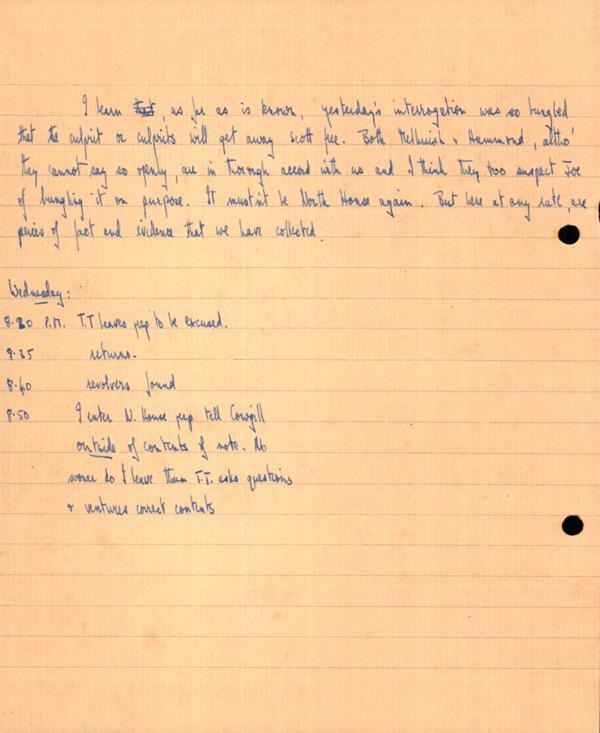 I learn that, as far as is known, yesterday's interrogation was so bungled
that the culprit or culprits will get away scott free. Both Melhuish & Hammond, altho'
they cannot say so openly, are in thorogh accord with us and I think they too suspect Joe
of bungling it on purpose. It mustn't be North House again. But here at any rate, are
peices of fact and evidence that we have collected.
Wednesday:
8.30 P.M. T.T leaves prep to be excused.
8.35 returns.
8.40 revolvers found
8.50 I enter N. House prep tell Cowgill
outside of contents of note. No
sooner do I leave than T.T. asks questions
& ventures correct contents